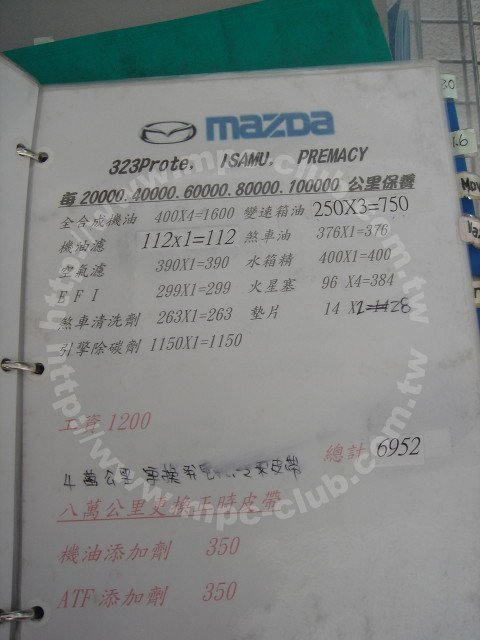 mazda
323Prote, ISAMU, PREMACY
每 20000.40000.60000.80000.100000 公里保養
全合成機油 400X4=1600 變速箱油 250X3=750
機油濾 112x1=112 煞車油 376X1=376
空氣濾 390X1=390 水箱精 400X1=400
EFI 299X1=299 火星塞 96 X4=384
煞車清洗劑 263X1=263 墊片 14 X2=28
引擎除碳劑 1150X1=1150
工資1200
總計 6952
4萬公里 更換 皮帶
八萬公里更換正時皮帶
機油添加劑 350
ATF添加劑 350
30
1.6
http://www.mpc-club.com.tw
http://www.mpc-club.com.tw